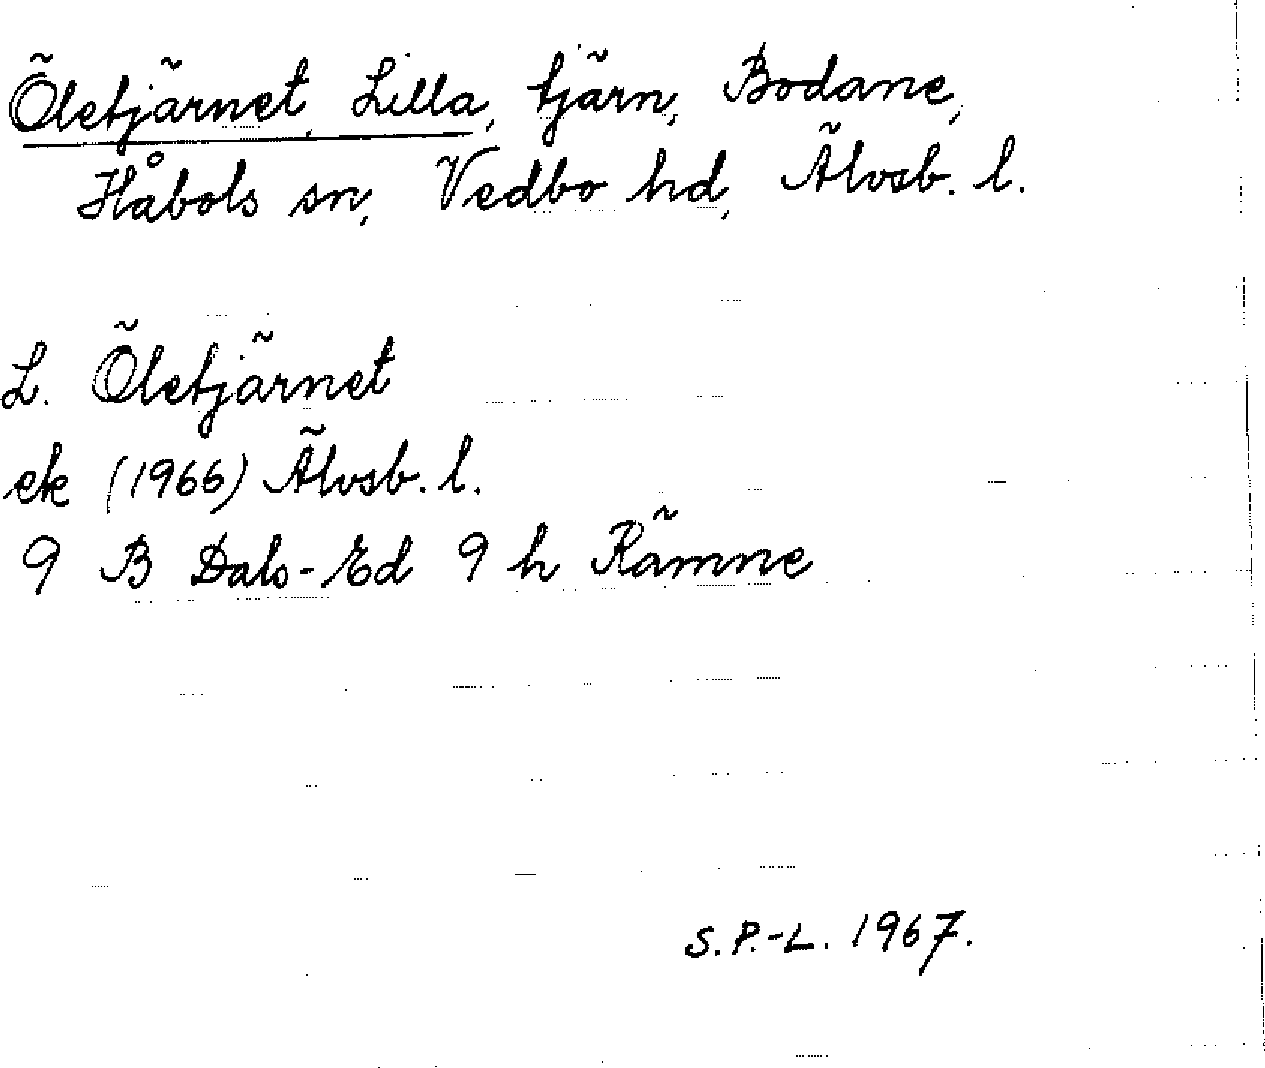 Öletjärnet, Lilla, tjärn, Bodane,
Håbols sn, Vedbo hd, Älvsb. l.
L. Öletjärnet
ek (1966) Älvsb. l.
9 B Dals-Ed 9 h Rämne
S.P.-L. 1967.